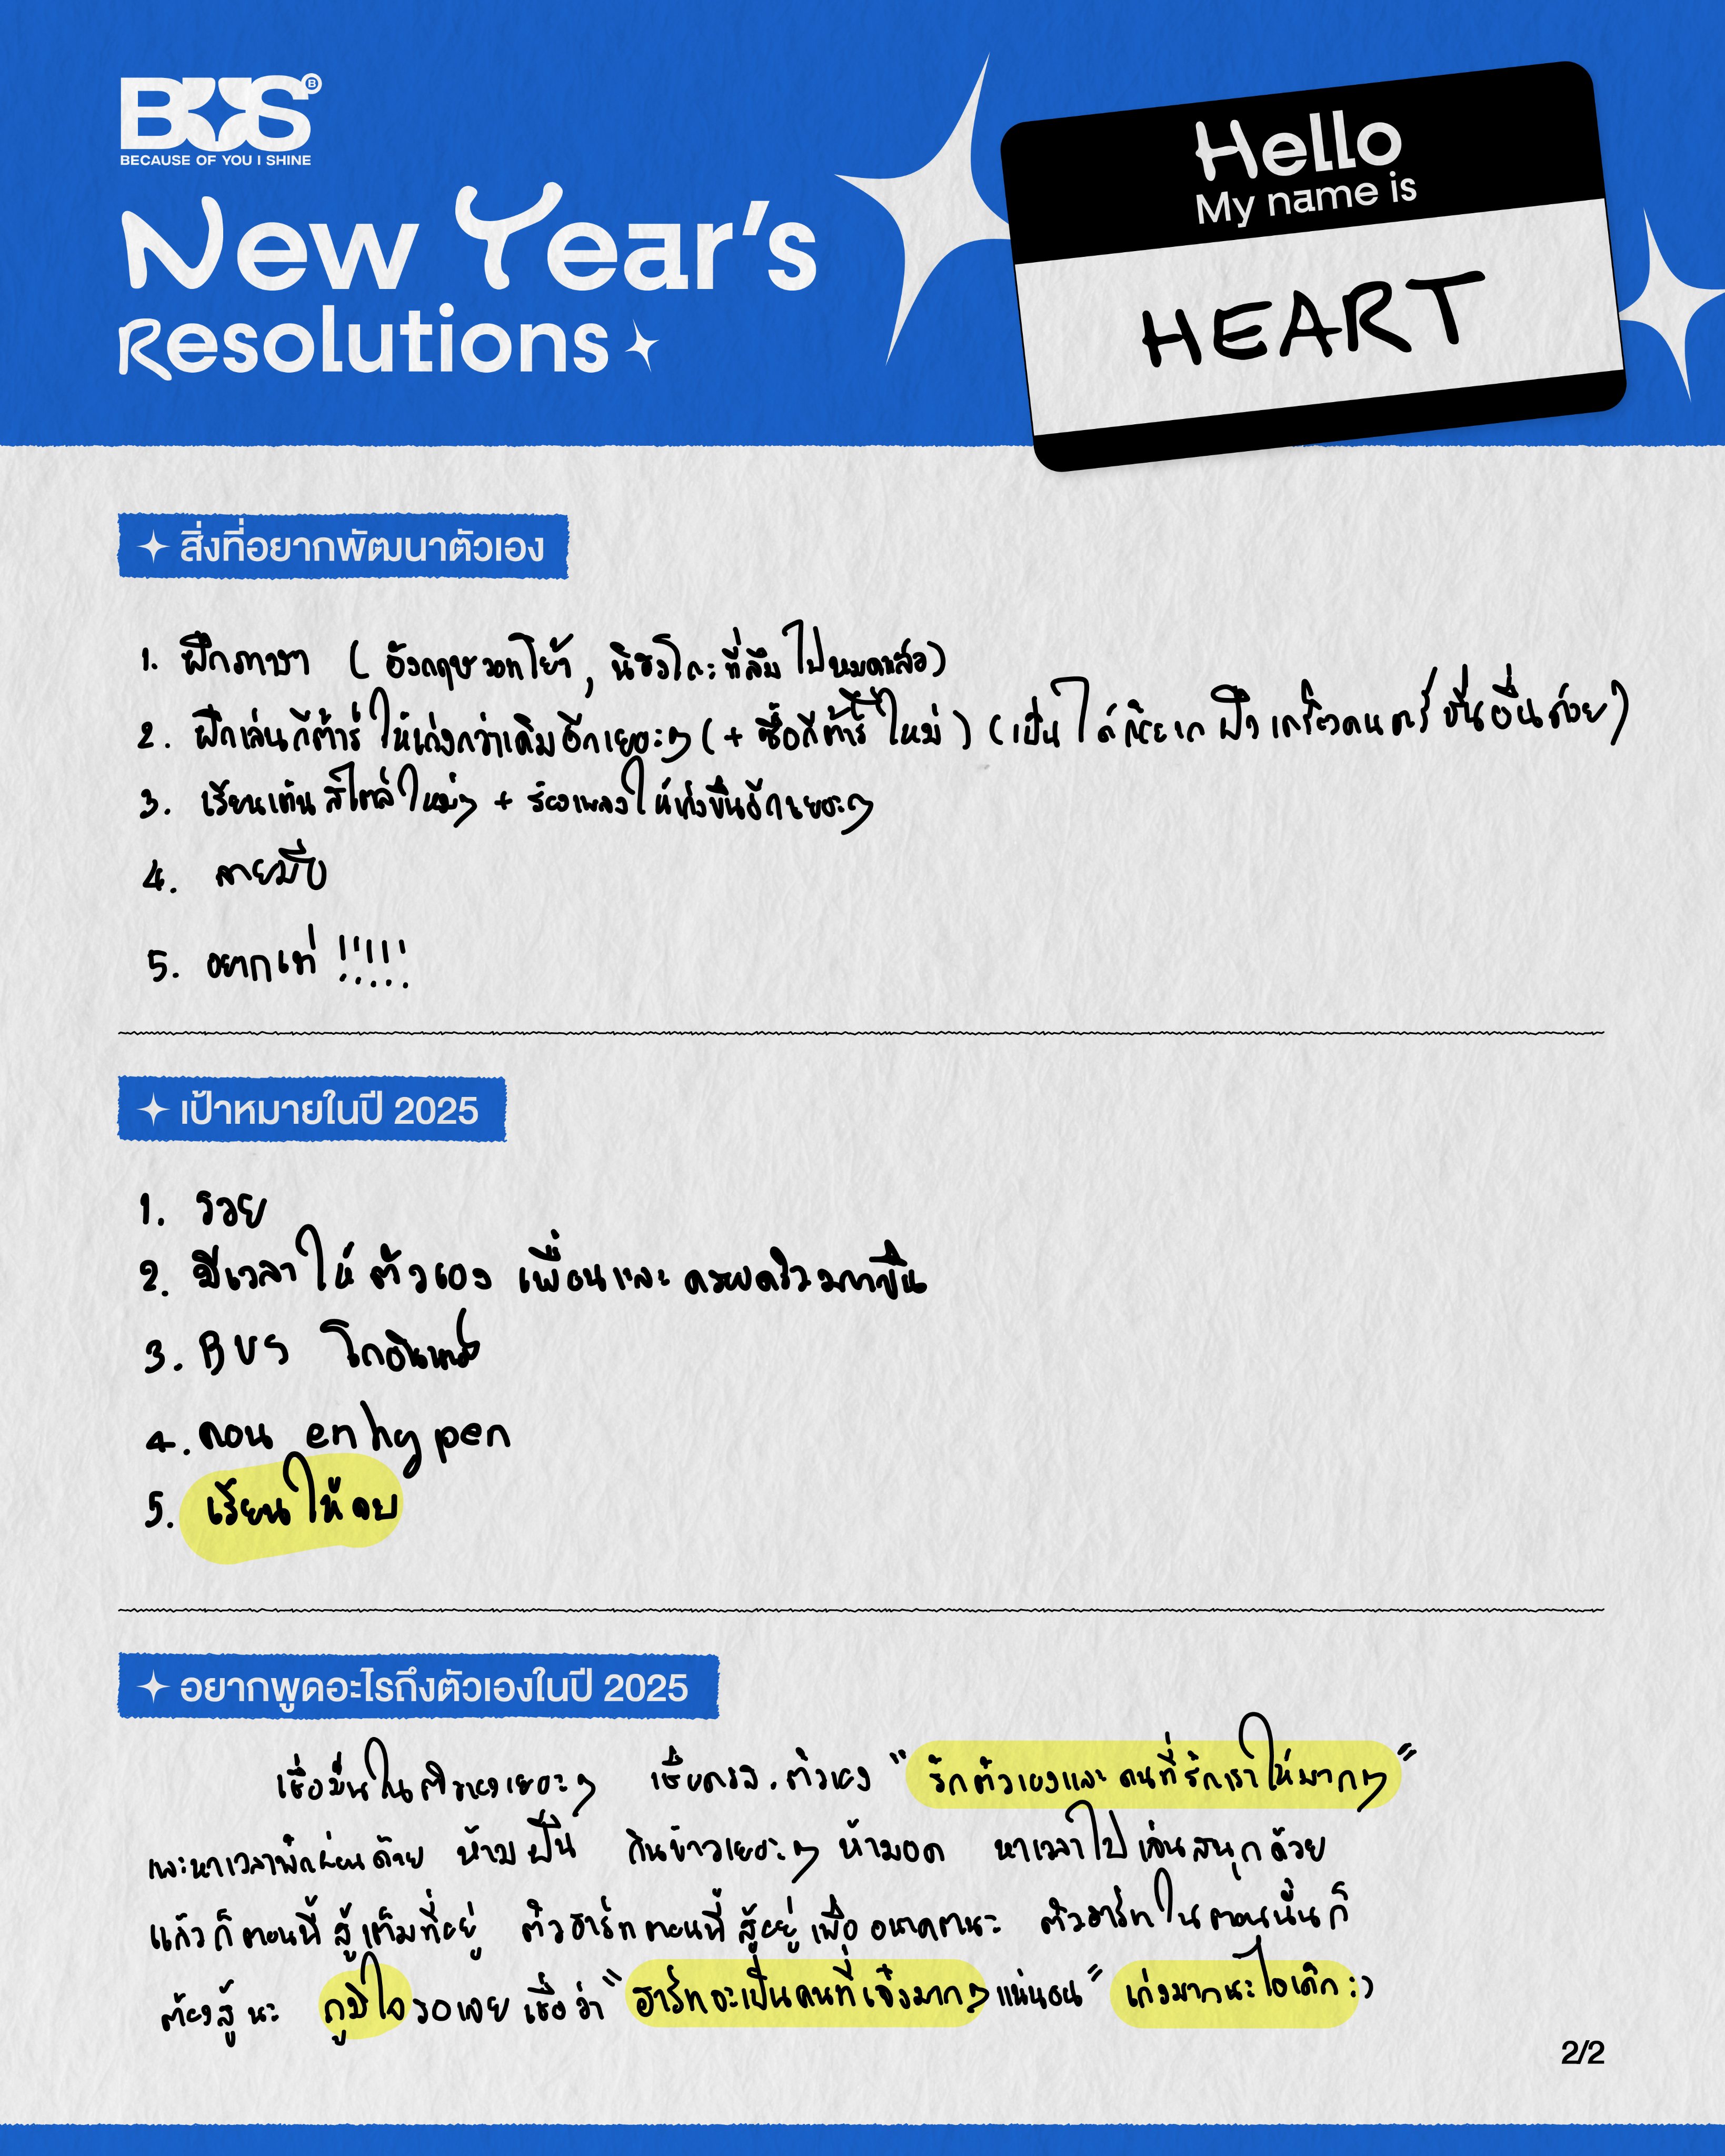 BUS B
BECAUSE OF YOU I SHINE
New Year's
Resolutions
Hello
My name is
HEART
สิ่งที่อยากพัฒนาตัวเอง
1. ฝึกภาษา ( อังกฤษ , นิฮงโกะที่ลืมไปหมดแล้ว)
2. ฝึกเล่นกีต้าร์ให้เก่งกว่าเดิมอีกเยอะๆ (+ ซื้อกีต้าร์ใหม่ ) (เป็นไปได้ก็อยากฝึกเครื่องดนตรีชิ้นอื่นด้วย)
3. เรียนเต้นสไตล์ใหม่ๆ + ร้องเพลงให้เก่งขึ้นอีกเยอะๆ
4. ลายมือ
5. อยากเท่ !!!!!
เป้าหมายในปี 2025
1. รวย
2. มีเวลาให้ตัวเอง เพื่อนและครอบครัวมากขึ้น
3. BUS โกอินเตอร์
4. คอน enhypen
5. เรียนให้จบ
อยากพูดอะไรถึงตัวเองในปี 2025
เชื่อมั่นในตัวเองเยอะๆ ตัวเอง "รักตัวเองและคนที่รักเราให้มากๆ"
และหาเวลาพักผ่อนด้วย ห้ามป่วย กินข้าวเยอะๆ ห้ามอด หาเวลาไปเล่นสนุกด้วย
แล้วก็ตอนนี้สู้เต็มที่อยู่ ตัวฮาร์ทตอนนี้สู้อยู่เพื่ออนาคตนะ ตัวฮาร์ทในตอนนั้นก็
ต้องสู้นะ ภูมิใจรอเลย เชื่อว่า "ฮาร์ทจะเป็นคนที่เจ๋งมากๆแน่นอน" เก่งมากนะไอเด็ก :)
2/2